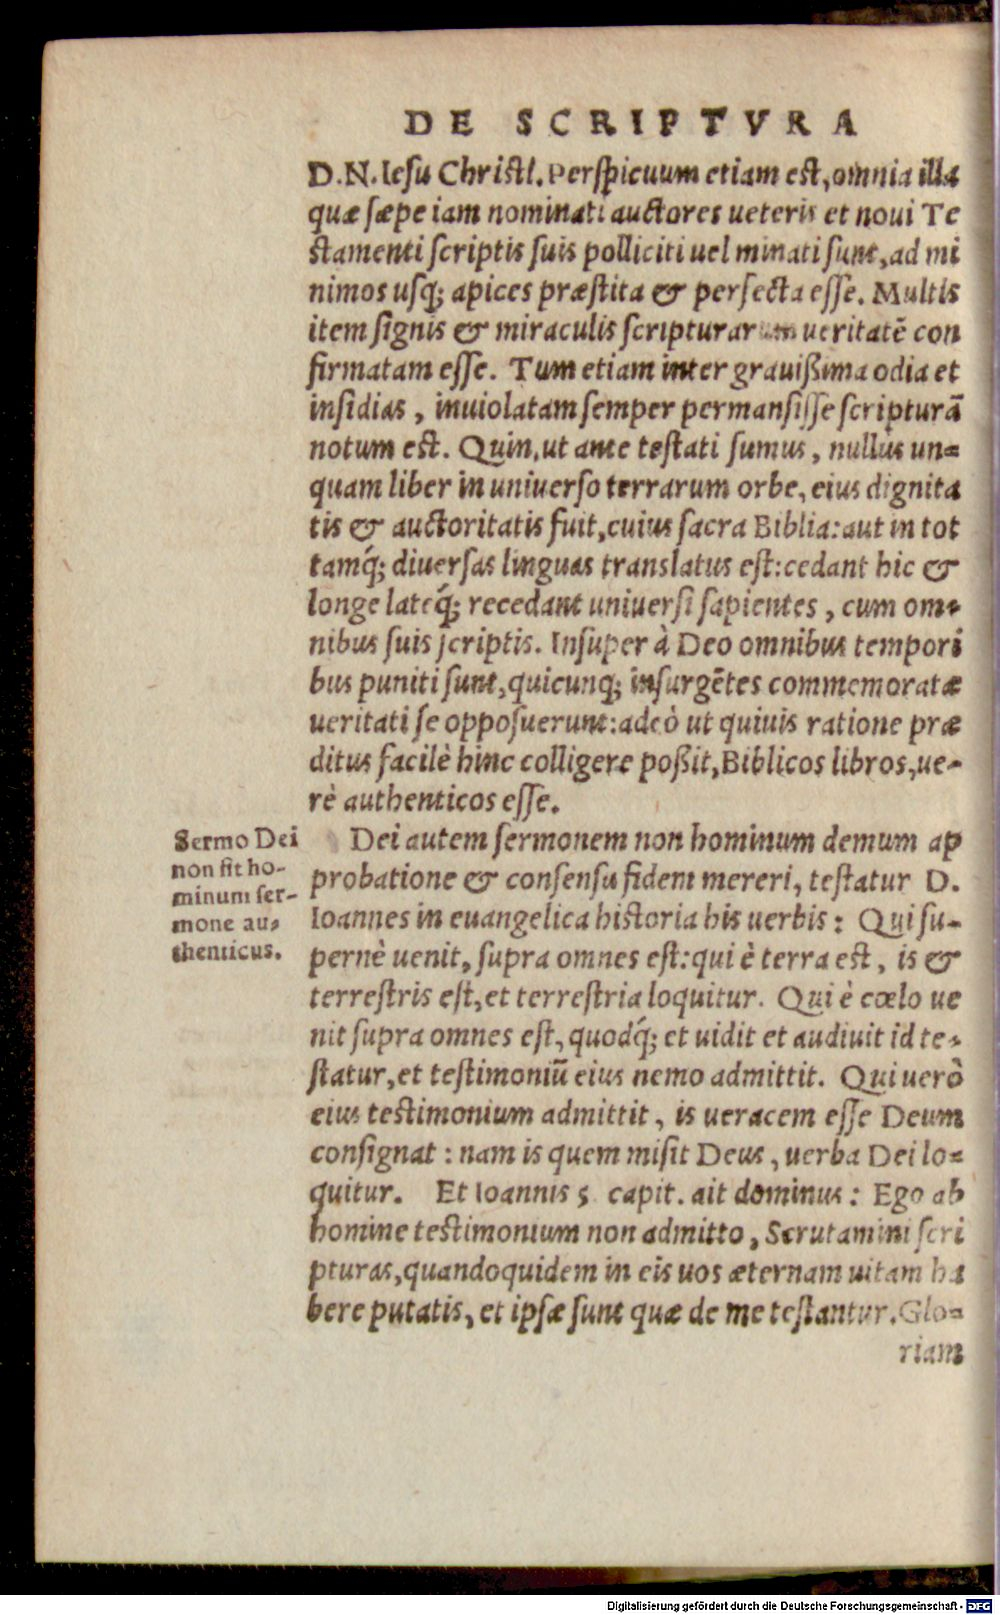 DE SCRIPTVRA
D.N.Iesu Christi. Perspicuum etiam est, omnia illa
quæ sæpe iam nominati auctores ueteris et noui Te
stamenti scriptis suis polliciti uel minati sunt, ad mi
nimos usq́; apices præstita & perfecta esse. Multis
item signis & miraculis scripturarum ueritatē con
firmatam esse. Tum etiam inter grauißima odia et
insidias, inuiolatam semper permansisse scripturā
notum est. Quin, ut ante testati sumus, nullus un=
quam liber in uniuerso terrarum orbe, eius dignita
tis & auctoritatis fuit, cuius sacra Biblia: aut in tot
tamq́; diuersas linguas translatus est: cedant hic &
longe lateq́; recedant uniuersi sapientes, cum om=
nibus suis scriptis. Insuper à Deo omnibus tempori
bus puniti sunt, quicunq; insurgētes commemoratæ
ueritati se opposuerunt: adeò ut quiuis ratione præ
ditus facilè hinc colligere poßit, Biblicos libros, ue-
rè authenticos esse.
Sermo Dei
non fit ho-
minum ser-
mone au-
thenticus.
Dei autem sermonem non hominum demum ap
probatione & consensu fidem mereri, testatur D.
Ioannes in euangelica historia his uerbis: Qui su-
pernè uenit, supra omnes est: qui è terra est, is &
terrestris est, et terrestria loquitur. Qui è cœlo ue
nit supra omnes est, quodq́; et uidit et audiuit id te-
statur, et testimoniū eius nemo admittit. Qui uerò
eius testimonium admittit, is ueracem esse Deum
consignat: nam is quem misit Deus, uerba Dei lo=
quitur. Et Ioannis 5 capit. ait dominus: Ego ab
homine testimonium non admitto, Scrutamini scri
pturas, quandoquidem in eis uos æternam uitam ha
bere putatis, et ipsæ sunt quæ de me testantur. Glo=
riam
Digitalisierung gefördert durch die Deutsche Forschungsgemeinschaft - DFG